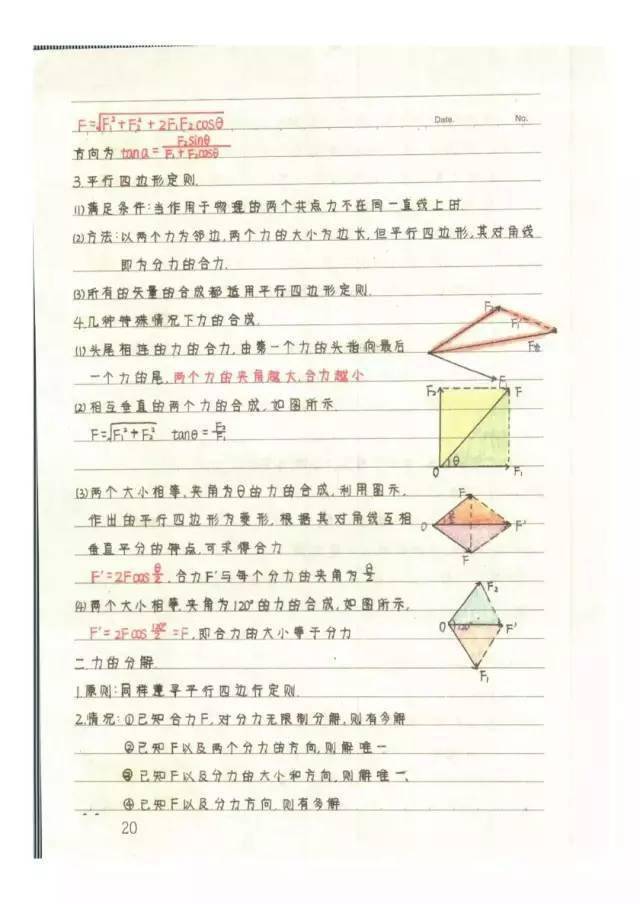 Date. No.
F=√F₁²+F₂²+2F₁F₂cosθ
方向为 tanα=F₂sinθ/F₁+F₂cosθ
3.平行四边形定则.
(1)满足条件:当作用于物理的两个共点力不在同一直线上时.
(2)方法:以两个力为邻边,两个力的大小为边长,但平行四边形,其对角线
即为分力的合力.
(3)所有的矢量的合成都适用平行四边形定则.
4.几种特殊情况下力的合成.
(1)头尾相连的力的合力,由第一个力的头指向最后
一个力的尾,两个力的夹角越大,合力越小
F₂ F₁' F合 F₁
(2)相互垂直的两个力的合成,如图所示
F=√F₁²+F₂² tanθ=F₂/F₁
F₂ F O θ F₁
(3)两个大小相等,夹角为θ的力的合成,利用图示,
作出的平行四边形为菱形,根据其对角线互相
垂直平分的特点,可求得合力
F'=2Fcosθ/2,合力F'与每个分力的夹角为θ/2
F O F' F
(4)两个大小相等,夹角为120°的力的合成,如图所示,
F'=2Fcos120°/2=F,即合力的大小等于分力
F₂ O 120° F' F₁
二.力的分解.
1.原则:同样遵寻平行四边行定则.
2.情况:①已知合力F,对分力无限制分解,则有多解
②已知F以及两个分力的方向,则解唯一
③已知F以及分力的大小和方向,则解唯一、
④已知F以及分力方向.则有多解
20